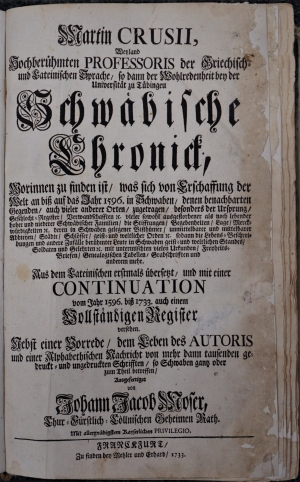 Martin CRUSII,
Weyland
Hochberühmten PROFESSORIS der Griechisch-
und Lateinischen Sprache/ so dann der Wohlredenheit bey der
Universität zu Tübingen
Schwäbische
Chronick,
Worinnen zu finden ist/ was sich von Erschaffung der
Welt an biß auf das Jahr 1596. in Schwaben/ denen benachbarten
Gegenden/ auch vieler anderer Orten/ zugetragen/ besonders der Ursprung/
Geschlecht-Register/ Verwandschafften ꝛc. vieler sowohl ausgestorbener als noch lebender
hoher und niederer Schwäbischer Familien/ die Stifftungen/ Begebenheiten/ Lage/ Merck-
würdigkeiten ꝛc. deren in Schwaben gelegener Bisthümer/ unmittelbarer und mittelbarer
Abbteyen/ Städte/ Schlösser/ geist- und weltlicher Orten ꝛc. sodann die Lebens-Beschrei-
bungen und andere Zufälle berühmter Leute in Schwaben geist- und weltlichen Standes/
Soldaten und Gelehrten ꝛc. mit untermischten vielen Urkunden/ Freyheits-
Briefen/ Genealogischen Tabellen/ Grabschrifften und
anderem mehr.
Aus dem Lateinischen erstmals übersetzt/ und mit einer
CONTINUATION
vom Jahr 1596. biß 1733. auch einem
Vollständigen Register
versehen.
Nebst einer Vorrede/ dem Leben des AUTORIS
und einer Alphabethischen Nachricht von mehr dann tausenden ge-
druckt- und ungedruckten Schrifften/ so Schwaben gantz oder
zum Theil betreffen/
Ausgefertiget
von
Johann Jacob Moser,
Chur-Fürstlich-Cöllnischen Geheimen Rath.
Mit allergnädigstem Kayserlichen PRIVILEGIO.
FRANCKFURT/
Zu finden bey Metzler und Erhard/ 1733.